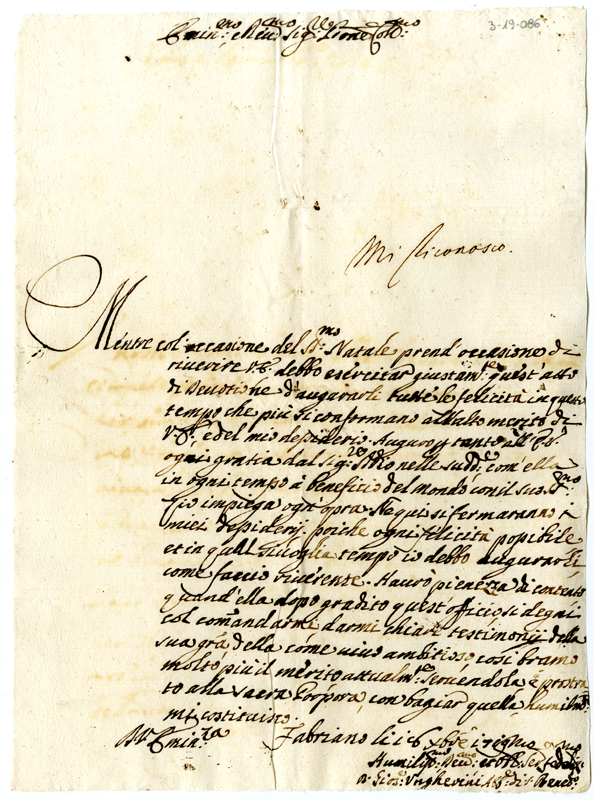 3-19-086
Emin:mo e Reu:mo Sig:re
Mi riconosco.
Mentre col occasione del S:mo Natale prend'occasione di
riuerire V.E. debbo esercitar giustam:te quest'atto
di Deuotione d'augurarli tutte le felicità in questo
tempo che più si conformano all'alto merito di
V.E., e del mio desiderio. Auguro p tanto all'
ogni gratia dal Sig:re Iddio nelle sudd:e com'ella
in ogni tempo à beneficio del mondo con il suo S:mo
impiega ogn'opra. Ne qui si fermaranno i
miei desiderij, poiche ogni felicità possibile
et in qual si uoglia tempo io debbo augurarli,
come faccio riuerente. Hauro pienezza di contento
quand'ella dopo gradito quest'officio, si degni
col comandarmi, darmi chiari testimonij della
sua gr:a della come uiuo ambitioso, così bramo
molto più il merito attualm:te Seruendola, e prostra
to alla Sacra Porpora, con baciar quella humilm:te
mi costituisco.
Di V. Emin:za
Fabriano li 16
Humiliss:mo Deu:mo et Obl:mo Ser:re